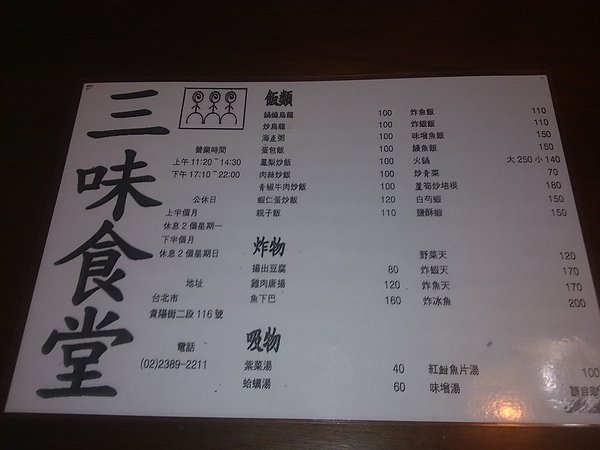 三味食堂
營業時間
上午 11:20~14:30
下午 17:10~22:00
公休日
上半個月
休息 2 個星期一
下半個月
休息 2 個星期日
地址
台北市
貴陽街二段 116 號
電話
(02)2389-2211
飯麵
鍋燒烏龍 100
炒烏龍 100
海產粥 100
蛋包飯 100
鳳梨炒飯 100
肉絲炒飯 100
青椒牛肉炒飯 100
蝦仁蛋炒飯 120
親子飯 110
炸魚飯 110
炸蝦飯 110
味增魚飯 150
鰻魚飯 150
火鍋 大 250 小 140
炒青菜 70
蘆筍炒培根 180
白芍蝦 150
鹽酥蝦 150
炸物
揚出豆腐 80
雞肉唐揚 120
魚下巴 160
野菜天 120
炸蝦天 170
炸魚天 170
炸冰魚 200
吸物
紫菜湯 40
蛤蠣湯 60
紅魽魚片湯 100
味增湯